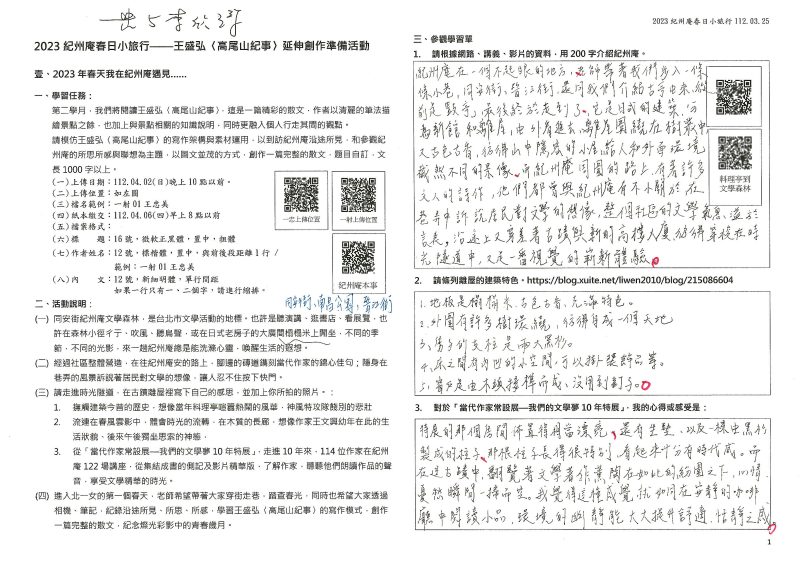 一忠5 李欣錚
2023 紀州庵春日小旅行——王盛弘〈高尾山紀事〉延伸創作準備活動
壹、2023 年春天我在紀州庵遇見……
一、學習任務：
第二學月，我們將閱讀王盛弘〈高尾山紀事〉，這是一篇精彩的散文，作者以清麗的筆法描
繪景點之餘，也加上與景點相關的知識說明，同時更融入個人行走其間的觀點。
請模仿王盛弘〈高尾山紀事〉的寫作架構與素材運用，以到訪紀州庵沿途所見，和參觀紀
州庵的所思所感與聯想為主題，以圖文並茂的方式，創作一篇完整的散文，題目自訂，文
長 1000 字以上。
(一)上傳日期：112.04.02(日)晚上 10 點以前。
(二)上傳位置：如左圖
(三)檔名範例：一射 01 王忠美
(四)紙本繳交：112.04.06(四)早上 8 點以前
(五)檔案格式：
(六)標　　題：16 號，微軟正黑體，置中，粗體
(七)作者姓名：12 號，標楷體，置中，與前後段距離 1 行／
範例：一射 01 王忠美
(八)內　　文：12 號，新細明體，單行間距
如果一行只有一、二個字，請進行縮排。
一忠上傳位置
一射上傳位置
紀州庵本事
同安街,南昌公園,晉江街
二、活動說明：
(一) 同安街紀州庵文學森林，是台北市文學活動的地標。也許是聽演講、逛書店、看展覽，也
許在森林小徑孑亍、吹風、聽鳥聲，或在日式老房子的大廣間榻榻米上閒坐，不同的季
節，不同的光影，來一趟紀州庵總是能洗滌心靈，喚醒生活的遐想。
(二) 經過社區整體營造，在往紀州庵要的路上，腳邊的磚道鐫刻當代作家的錦心佳句；隱身在
巷弄的風景訴說著居民對文學的想像，讓人忍不住按下快門。
(三) 請走進時光隧道，在古蹟離屋裡寫下自己的感思，並加上你所拍的照片。：
1. 撫觸建築今昔的歷史，想像當年料理亭喧囂熱鬧的風華，神風特攻隊餞別的悲壯
2. 流連在春風雲影中，體會時光的流轉，在木質的長廊，想像作家王文興幼年在此的生
活狀貌，後來午後獨坐思索的神態，
3. 從「當代作家常設展—我們的文學夢 10 年特展」，走進 10 年來，114 位作家在紀州
庵 122 場講座，從集結成書的側記及影片精華版，了解作家，聆聽他們朗讀作品的聲
音，享受文學精華的時光。
(四) 進入北一女的第一個春天，老師希望帶著大家穿街走巷，踏查春光，同時也希望大家透過
相機、筆記，紀錄沿途所見、所思、所感，學習王盛弘〈高尾山紀事〉的寫作模式，創作
一篇完整的散文，紀念燦光彩影中的青春歲月。
2023 紀州庵春日小旅行 112.03.25
三、參觀學習單
1. 請根據網路、講義、影片的資料，用 200 字介紹紀州庵。
紀州庵在一個不起眼的地方，老師牽著我們步入一條
條小巷，同安街、晉江街，還向我們介紹古宇由來，從
前是數宅，最後終於走到了，它是日式的建築，分
為新館和離屋，由外看進去，離屋圍繞在樹叢中
又古色古香，彷彿山中隱庵的小居給人和外面環境
截然不同的景像。而紀州庵周圍的路上，有著許多
文人的詩作，他們都曾與紀州庵有不小關於，在
巷弄中訴說居民對文學的想像，整個社區的文學氣息，溢於
言表，沿途上又穿差著古蹟與新的高樓大廈，彷彿穿梭在時
光隧道中，又是一番視覺的嶄新體驗。
料理亭到
文學森林
2. 請條列離屋的建築特色。https://blog.xuite.net/liwen2010/blog/215086604
1. 地板是榻榻米，古色古香，充滿特色。
2. 外圍有許多樹環繞，彷彿自成一個天地
3. 房子的支柱是兩大黑杉。
4. 床之間有內凹的小空間，可以掛裝飾品等。
5. 都是由木頭接榫而成，沒用到釘子。
3. 對於「當代作家常設展—我們的文學夢 10 年特展」，我的心得或感受是：
特展的那個房間佈置得相當漂亮，還有坐墊，以及一棵由黑杉
製成的柱子，那根柱子長得很特別，看起來十分有時代感。而
在這古蹟中，翻覽著文學著作，薰陶在如此的氛圍之下，心情
憂愁瞬間一掃而空。我覺得這種感覺，就如同在安靜的咖啡
廳中閱讀小品，環境的幽靜能大大提升舒適、恬靜之感
1